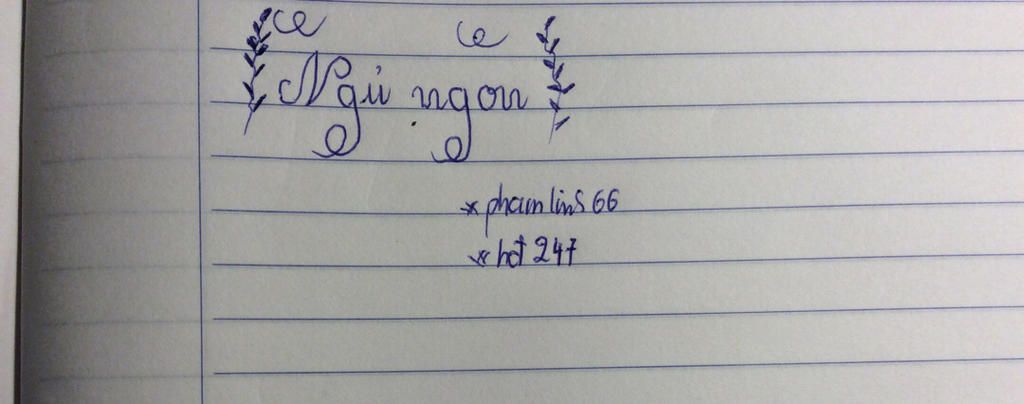 Ngủ ngon
* phamlins66
* hđ 247